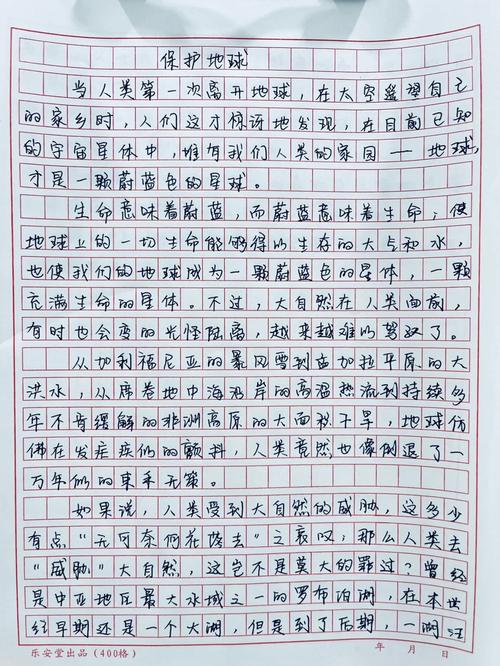 保护地球
当人类第一次离开地球，在太空遥望自己
的家乡时，人们这才惊讶地发现，在目前已知
的宇宙星体中，唯有我们人类的家园——地球，
才是一颗蔚蓝色的星球。
生命意味着蔚蓝，而蔚蓝意味着生命；使
地球上的一切生命能够得以生存的大气和水，
也使我们的地球成为一颗蔚蓝色的星体，一颗
充满生命的星体。不过，大自然在人类面前，
有时也会变的光怪陆离，越来越难以驾驭了。
从加利福尼亚的暴风雪到孟加拉平原的大
洪水，从席卷地中海沿岸的高温热流到持续多
年不肯缓解的非洲高原的大面积干旱，地球仿
佛在发疟疾似的颤抖，人类竟然也像倒退了一
万年似的束手无策。
如果说，人类受到大自然的威胁，这多少
有点“无可奈何花落去”之哀叹；那么人类去
“威胁”大自然，这岂不是莫大的罪过？曾经
是中亚地区最大水域之一的罗布泊湖，在本世
纪早期还是一个大湖，但是到了后期，一湖汪
乐安堂出品（400格）
年 月 日